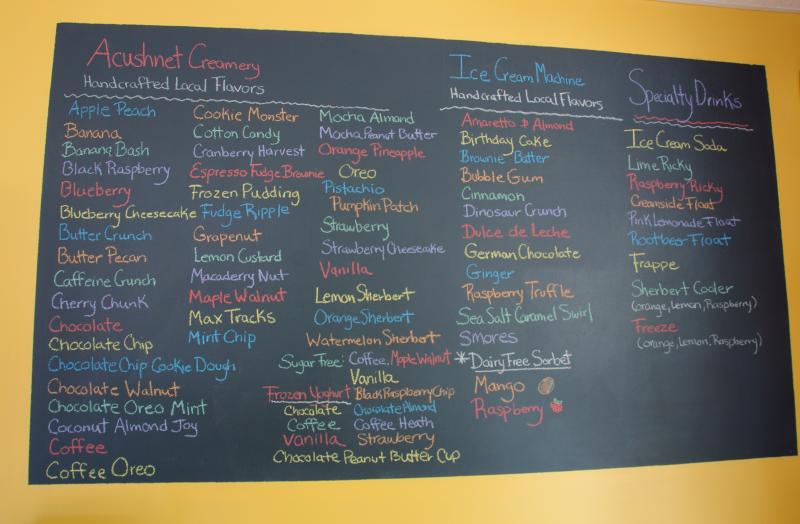 Acushnet Creamery
Handcrafted Local Flavors
Apple Peach
Banana
Banana Bash
Black Raspberry
Blueberry
Blueberry Cheesecake
Butter Crunch
Butter Pecan
Caffeine Crunch
Cherry Chunk
Chocolate
Chocolate Chip
Chocolate Chip Cookie Dough
Chocolate Walnut
Chocolate Oreo Mint
Coconut Almond Joy
Coffee
Coffee Oreo
Cookie Monster
Cotton Candy
Cranberry Harvest
Espresso Fudge Brownie
Frozen Pudding
Fudge Ripple
Grapenut
Lemon Custard
Macaderry Nut
Maple Walnut
Max Tracks
Mint Chip
Mocha Almond
Mocha Peanut Butter
Orange Pineapple
Oreo
Pistachio
Pumpkin Patch
Strawberry
Strawberry Cheesecake
Vanilla
Lemon Sherbert
Orange Sherbert
Watermelon Sherbert
Sugar Free: Coffee, Maple Walnut
Vanilla
Frozen Yoghurt Black Raspberry Chip
Chocolate Chocolate Almond
Coffee Coffee Heath
Vanilla Strawberry
Chocolate Peanut Butter Cup
Ice Cream Machine
Handcrafted Local Flavors
Amaretto & Almond
Birthday Cake
Brownie Batter
Bubble Gum
Cinnamon
Dinosaur Crunch
Dulce de Leche
German Chocolate
Ginger
Raspberry Truffle
Sea Salt Caramel Swirl
Smores
*Dairy Free Sorbet
Mango
Raspberry
Specialty Drinks
Ice Cream Soda
Lime Ricky
Raspberry Ricky
Creamside Float
Pink Lemonade Float
Rootbeer Float
Frappe
Sherbert Cooler
(orange, Lemon, Raspberry)
Freeze
(orange, Lemon, Raspberry)